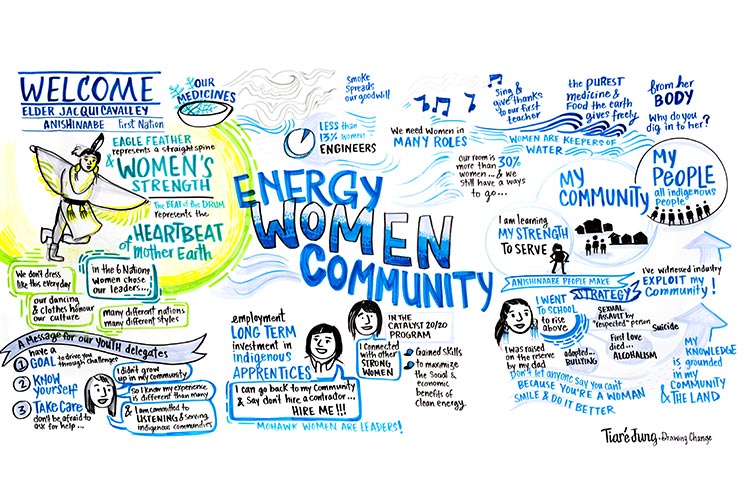 WELCOME
ELDER JACQUI LAVALLEY
ANISHINAABE First Nation
OUR
MEDICINES
EAGLE FEATHER
represents a straight spine
& WOMEN'S
STRENGTH
The BEAT of the DRUM
represents the
HEARTBEAT
of Mother Earth
We don't dress
like this everyday
in the 6 Nations
women chose
our leaders...
our dancing
& clothes honour
our culture
many different nations
many different styles
A Message for our YOUTH delegates
1 have a
GOAL to drive you
through challenges
2 KNOW
yourself
3 TAKE Care
don't be afraid to
ask for help...
I didn't grow
up in my community
So I know my experience
is different than many
& I am committed to
LISTENING & serving
indigenous communities
Smoke
Spreads
our goodwill
LESS than
13% women
ENGINEERS
ENERGY
WOMEN
COMMUNITY
employment
LONG TERM
investment in
indigenous
APPRENTICES
I can go back to my Community
& Say don't hire a contractor...
HIRE ME!!!
MOHAWK WOMEN ARE LEADERS!
IN THE
CATALYST 20/20
PROGRAM
I connected
with other
STRONG
WOMEN
Gained skills
to maximize
the social &
economic
benefits of
clean energy.
We need Women in
MANY ROLES
Our room is
more than 30%
women... & we
still have a ways
to go...
Sing &
give thanks
to our first
teacher
the PUREST
medicine &
Food the earth
gives freely
from her
BODY
Why do you
dig in to her?
WOMEN ARE KEEPERS OF
WATER
MY
COMMUNITY
My
PEOPLE
all indigenous
people
I am learning
MY STRENGTH
TO SERVE
ANISHINAABE PEOPLE MAKE
STRATEGY
I've witnessed industry
EXPLOIT my
Community!
I WENT
TO SCHOOL
to rise
above
SEXUAL
ASSAULT by
"respected" person
Suicide
First Love
died...
ALCOHALISM
adopted...
BULLYING
I was raised
on the reserve
by my dad
Don't let anyone say you can't
BECAUSE YOU'RE A WOMAN
SMILE & DO IT BETTER
MY
KNOWLEDGE
is grounded
in my
COMMUNITY
& THE LAND
Tiaré Jung. Drawing Change